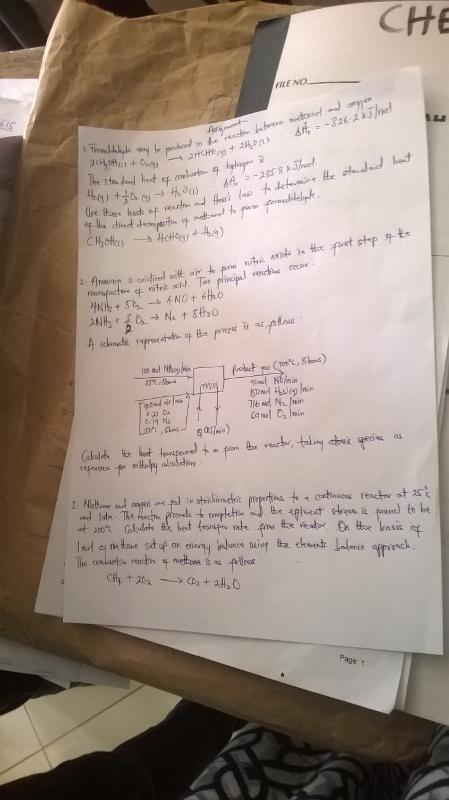 CHE
FILE NO.
615
Assignment
1. Formaldehyde may be produced in the reaction between methanol and oxygen
2CH3OH(l) + O2(g) → 2HCHO(g) + 2H2O(l) : ΔHr = -326.2 kJ/mol
The standard heat of combustion of hydrogen is
H2(g) + 1/2 O2(g) → H2O(l) : ΔHr = -285.8 kJ/mol
Use these heats of reaction and Hess's law to determine the standard heat
of the direct decomposition of methanol to form formaldehyde.
CH3OH(l) → HCHO(g) + H2(g)
2. Ammonia is oxidized with air to form nitric oxide in the first step of the
manufacture of nitric acid. Two principal reactions occur.
4NH3 + 5O2 → 4NO + 6H2O
2NH3 + 3/2 O2 → N2 + 3H2O
A schematic representation of the process is as follows:
100 mol NH3/min
25°C, 8bars
900 mol air/min
0.21 O2
0.79 N2
150°C, 8bars
Q (kJ/min)
Product gas (700°C, 8bars)
90 mol NO/min
150 mol H2O(g)/min
716 mol N2/min
69 mol O2/min
Calculate the heat transferred to or from the reactor, taking atomic species as
reference for enthalpy calculation.
3. Methane and oxygen are fed in stoichiometric proportions to a continuous reactor at 25°C
and 1atm. The reaction proceeds to completion and the effluent stream is found to be
at 200°C. Calculate the heat transfer rate from the reactor. On the basis of
1mol of methane set up an energy balance using the elements balance approach.
The combustion reaction of methane is as follows:
CH4 + 2O2 → CO2 + 2H2O
Page 1